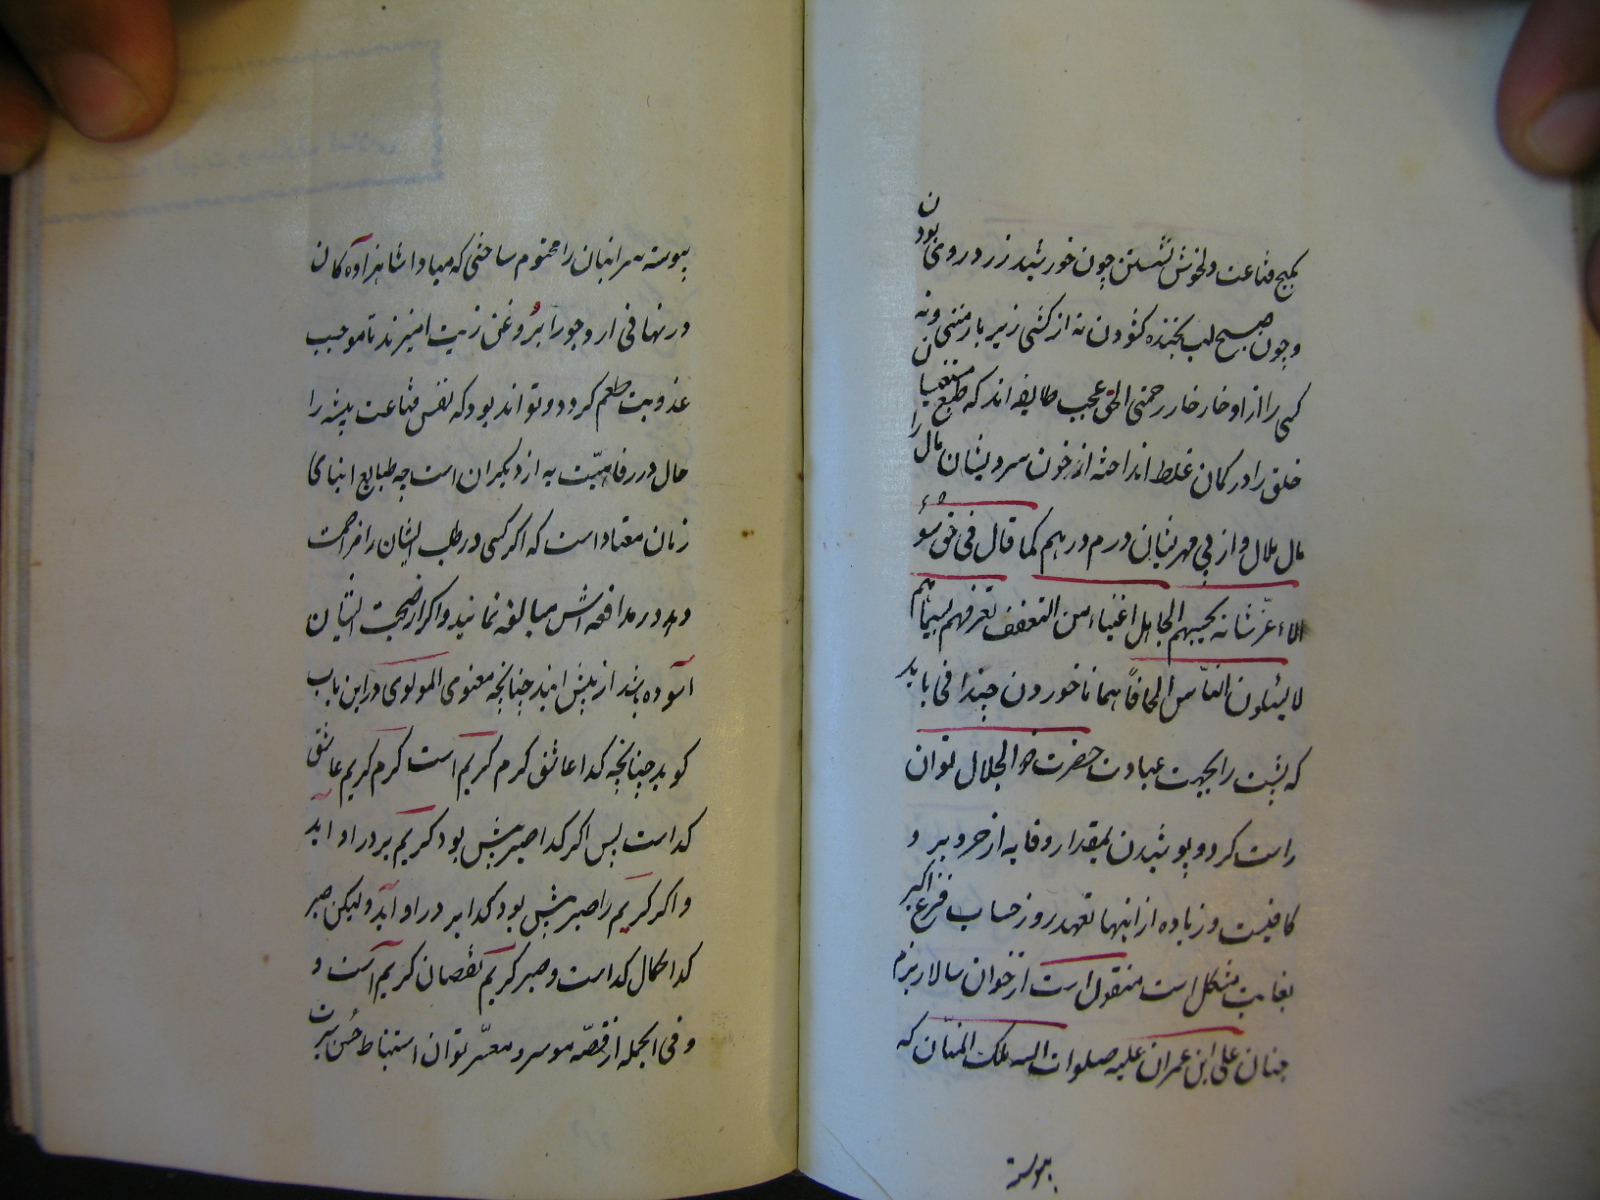 بکنج قناعت دلخوش نشستن چون خورشید زر در روی بودن
و چون صبح لب بخنده کشودن نه از کسی زیر بار منتی و نه
کسی را از او خار خار زحمتی الحق عجب طایفه اند که طبع مستغنیان
خلق را در کمان غلط انداخته از خون سردیشان مال را
مال ملال و از بی مهریشان درم درهم کما قال فی حق هؤ
لاء عزّ شانه یحسبهم الجاهل اغنیاء من التعفف تعرفهم بسیماهم
لا یسئلون النّاس الحافاً همانا خوردن چندانی باید
که پشت را بجهت عبادت حضرت ذو الجلال توان
راست کرد و پوشیدن بمقدار وقایه از حر و برد
کافیست و زیاده از اینها تعهد روز حساب فزع اکبر
بغایت مشکل است منقول است از خوان سالار بزم
جنان علی ابن عمران علیه صلوات الله ملک المنّان که
پیوسته
پیوسته سر انبان را مختوم ساختی که مبادا شاهزاده کان
در نهانی ارد جو را بروغن زیت امیزند تا موجب
عذوبت طعم کردد و تواند بود که نفس قناعت پیشه را
حال در رفاهیّت به از دیکران است چه طبایع ابنای
زمان معتاد است که اکر کسی در طلب ایشان را مزاحمت
دهد در مدافعه اش مبالغه نمایند و اکر از صحبت ایشان
آسوده باشد از پیش ایند چنانچه معنوی المولوی در این باب
کوید چنانچه کدا عاشق کرم کریم است کرم کریم عاشق
کداست پس اکر کدا صبر بیش بود کریم بر در او آید
و اکر کریم را صبر بیش بود کدا بر در او آید ولیکن صبر
کدا کمال کداست و صبر کریم نقصان کریم است و
و فی الجمله از قصّه موسر و معسّر توان استنباط حُسن سیرت